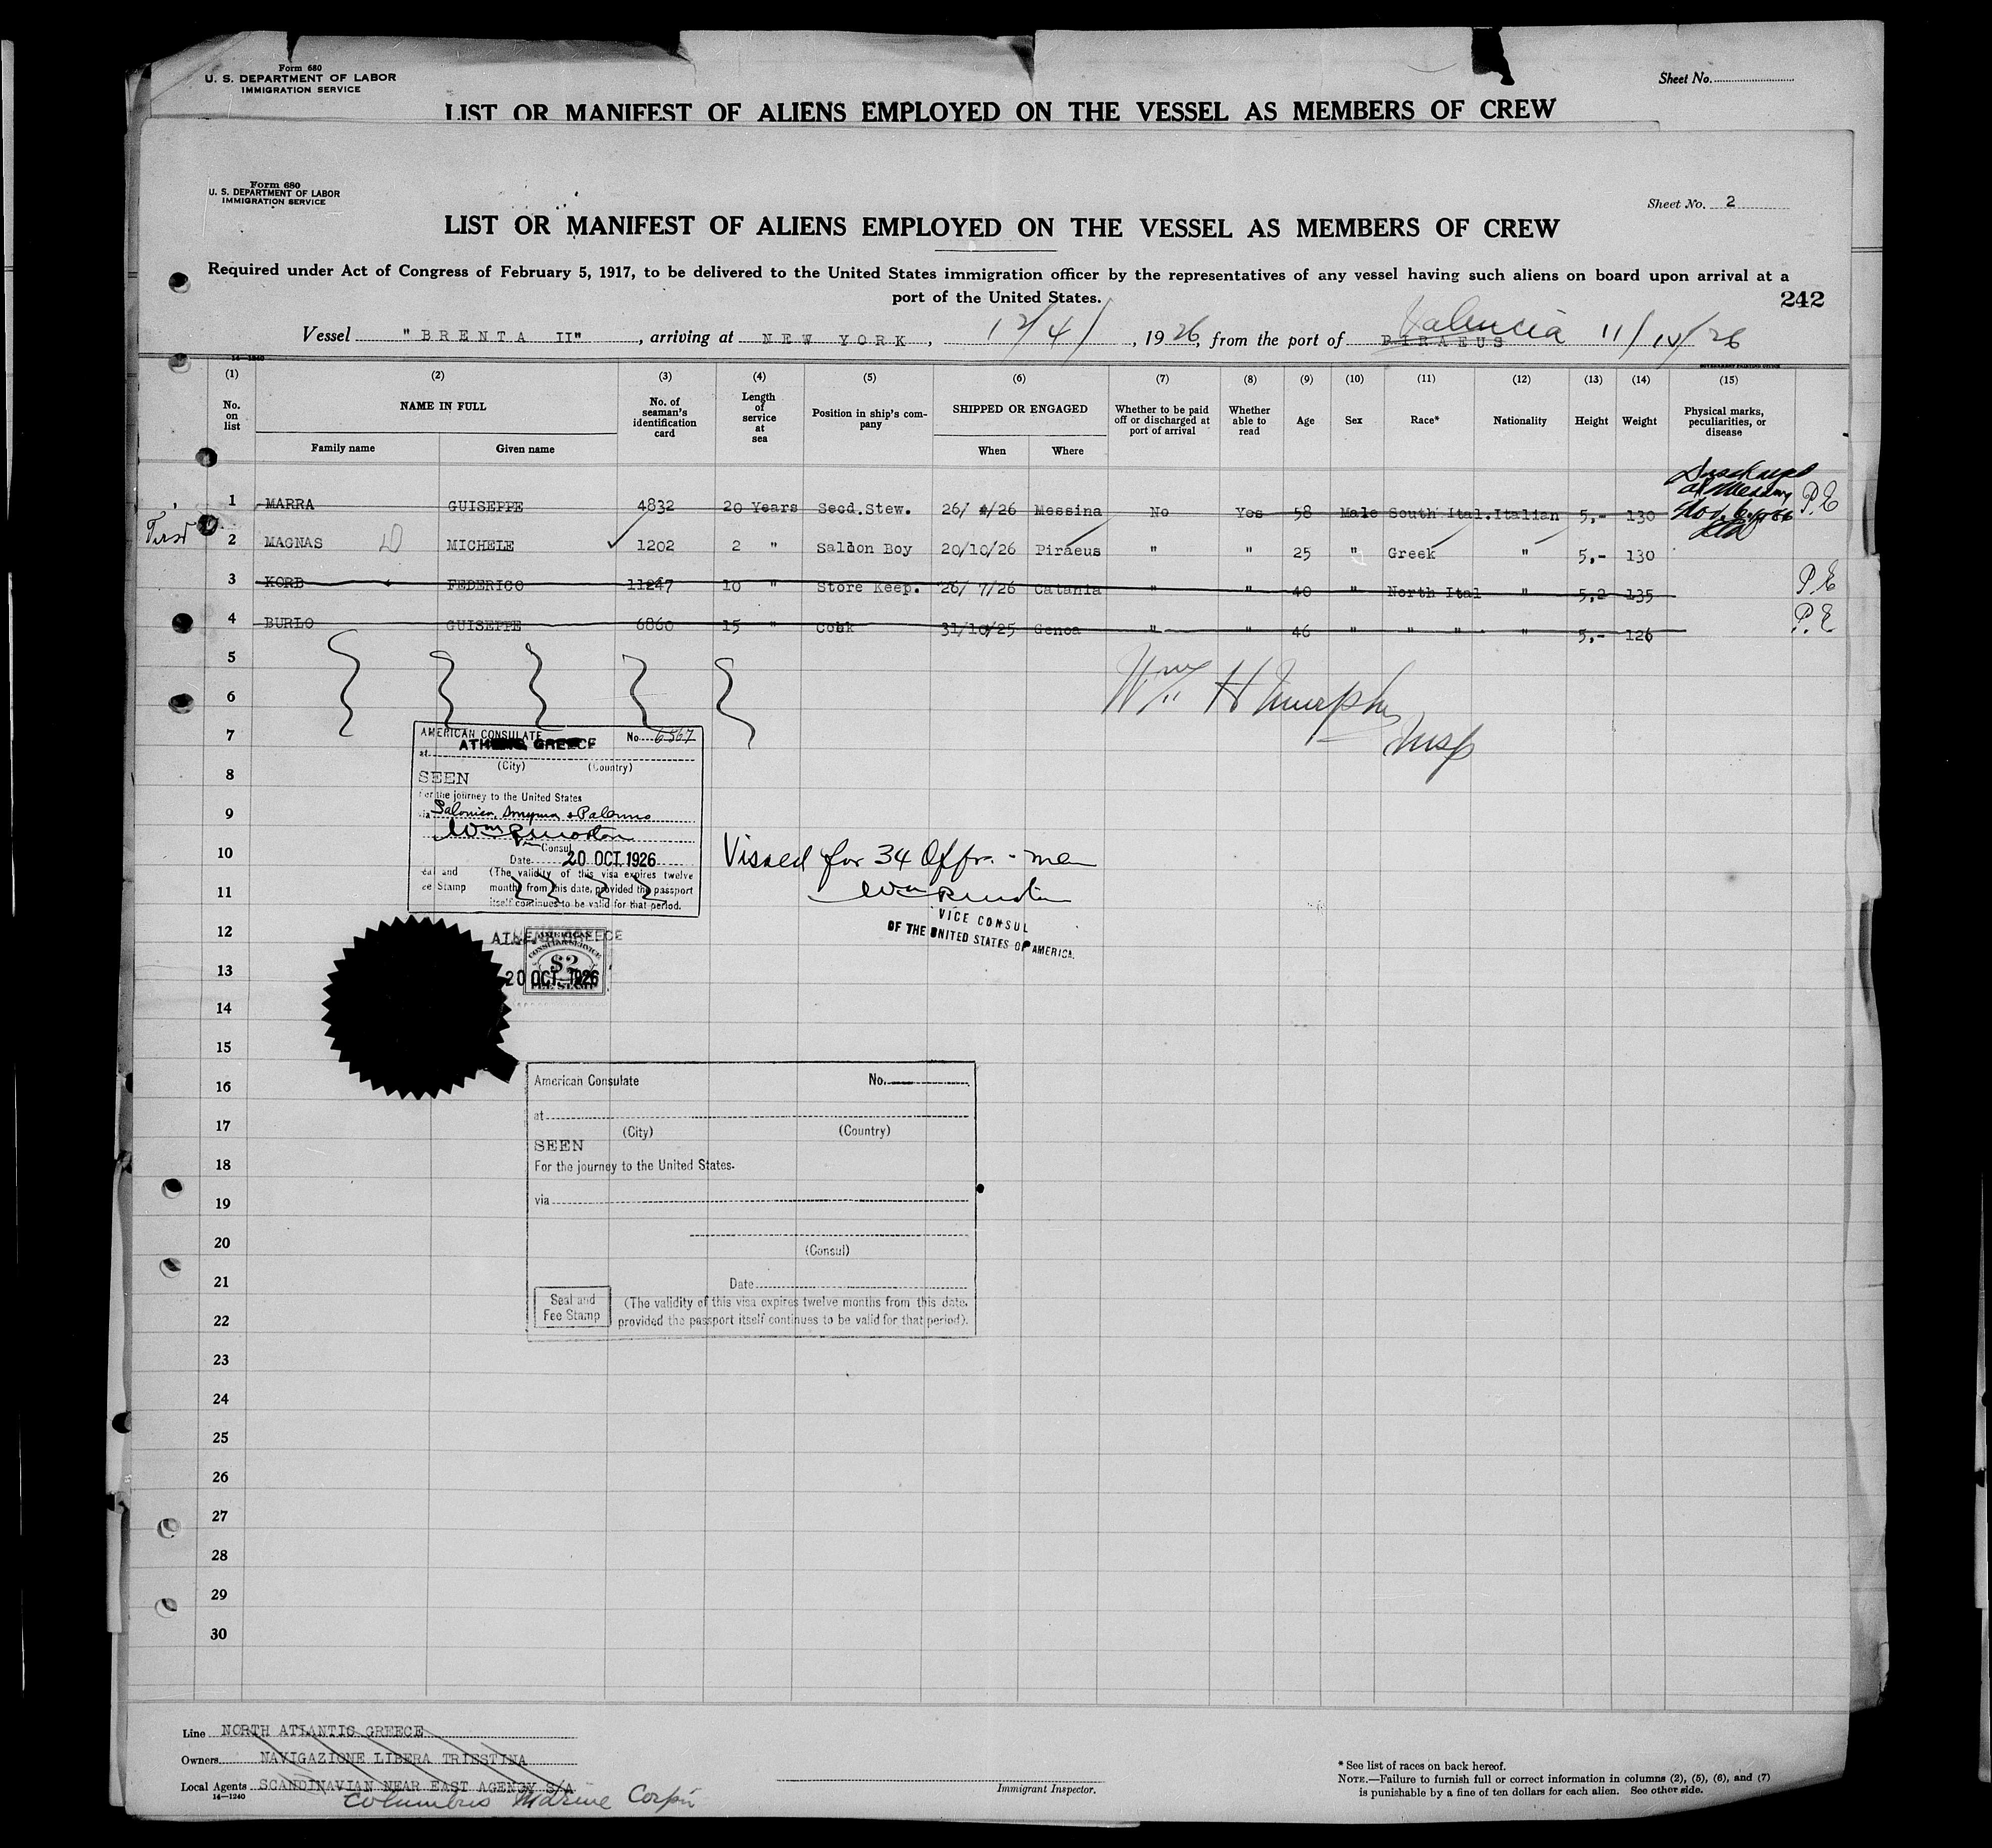 Form 680
U. S. DEPARTMENT OF LABOR
IMMIGRATION SERVICE
Sheet No.
LIST OR MANIFEST OF ALIENS EMPLOYED ON THE VESSEL AS MEMBERS OF CREW
Form 680
U. S. DEPARTMENT OF LABOR
IMMIGRATION SERVICE
Sheet No. 2
LIST OR MANIFEST OF ALIENS EMPLOYED ON THE VESSEL AS MEMBERS OF CREW
Required under Act of Congress of February 5, 1917, to be delivered to the United States immigration officer by the representatives of any vessel having such aliens on board upon arrival at a
port of the United States.
242
Vessel "BRENTA II", arriving at NEW YORK, 12/4/, 1926, from the port of PIRAEUS Valencia 11/ /26
14—1240
GOVERNMENT PRINTING OFFICE
(1) (2) (3) (4) (5) (6) (7) (8) (9) (10) (11) (12) (13) (14) (15)
No. on list
NAME IN FULL
Family name Given name
No. of seaman's identification card
Length of service at sea
Position in ship's company
SHIPPED OR ENGAGED
When Where
Whether to be paid off or discharged at port of arrival
Whether able to read
Age
Sex
Race*
Nationality
Height
Weight
Physical marks, peculiarities, or disease
1 MARRA GUISEPPE 4832 20 Years Secd.Stew. 26/ 4/26 Messina No Yes 58 Male South Ital. Italian 5,- 130 P.E
2 MAGNAS MICHELE 1202 2 " Saloon Boy 20/10/26 Piraeus " " 25 " Greek " 5,- 130
3 KORB FEDERICO 11247 10 " Store Keep. 26/ 7/26 Catania " " 40 " North Ital " 5,2 135 P.E
4 BURLO GUISEPPE 6860 15 " Cook 31/10/25 Genoa " " 46 " " " " 5,- 126 P.E
5
6
Wm H Murphy
Insp
7
8
9
10
11
12
13
14
15
16
17
18
19
20
21
22
23
24
25
26
27
28
29
30
AMERICAN CONSULATE No 6567
at ATHENS, GREECE
(City) (Country)
SEEN
For the journey to the United States
via Salonica, Smyrna & Palermo
Consul
Date 20 OCT. 1926
Seal and
Fee Stamp
(The validity of this visa expires twelve
months from this date, provided the passport
itself continues to be valid for that period.
Visaed for 34 Offrs. - men
VICE CONSUL
OF THE UNITED STATES OF AMERICA.
ATHENS, GREECE
AMERICAN
CONSULAR SERVICE
$2
FEE STAMP
20 OCT. 1926
American Consulate No.
at
(City) (Country)
SEEN
For the journey to the United States.
via
(Consul)
Date
Seal and
Fee Stamp
(The validity of this visa expires twelve months from this date,
provided the passport itself continues to be valid for that period).
Line NORTH ATLANTIC GREECE
Owners NAVIGAZIONE LIBERA TRIESTINA
Local Agents SCANDINAVIAN NEAR EAST AGENCY S/A
14—1240
Columbus Marine Corp'n
Immigrant Inspector.
* See list of races on back hereof.
NOTE.—Failure to furnish full or correct information in columns (2), (5), (6), and (7)
is punishable by a fine of ten dollars for each alien. See other side.